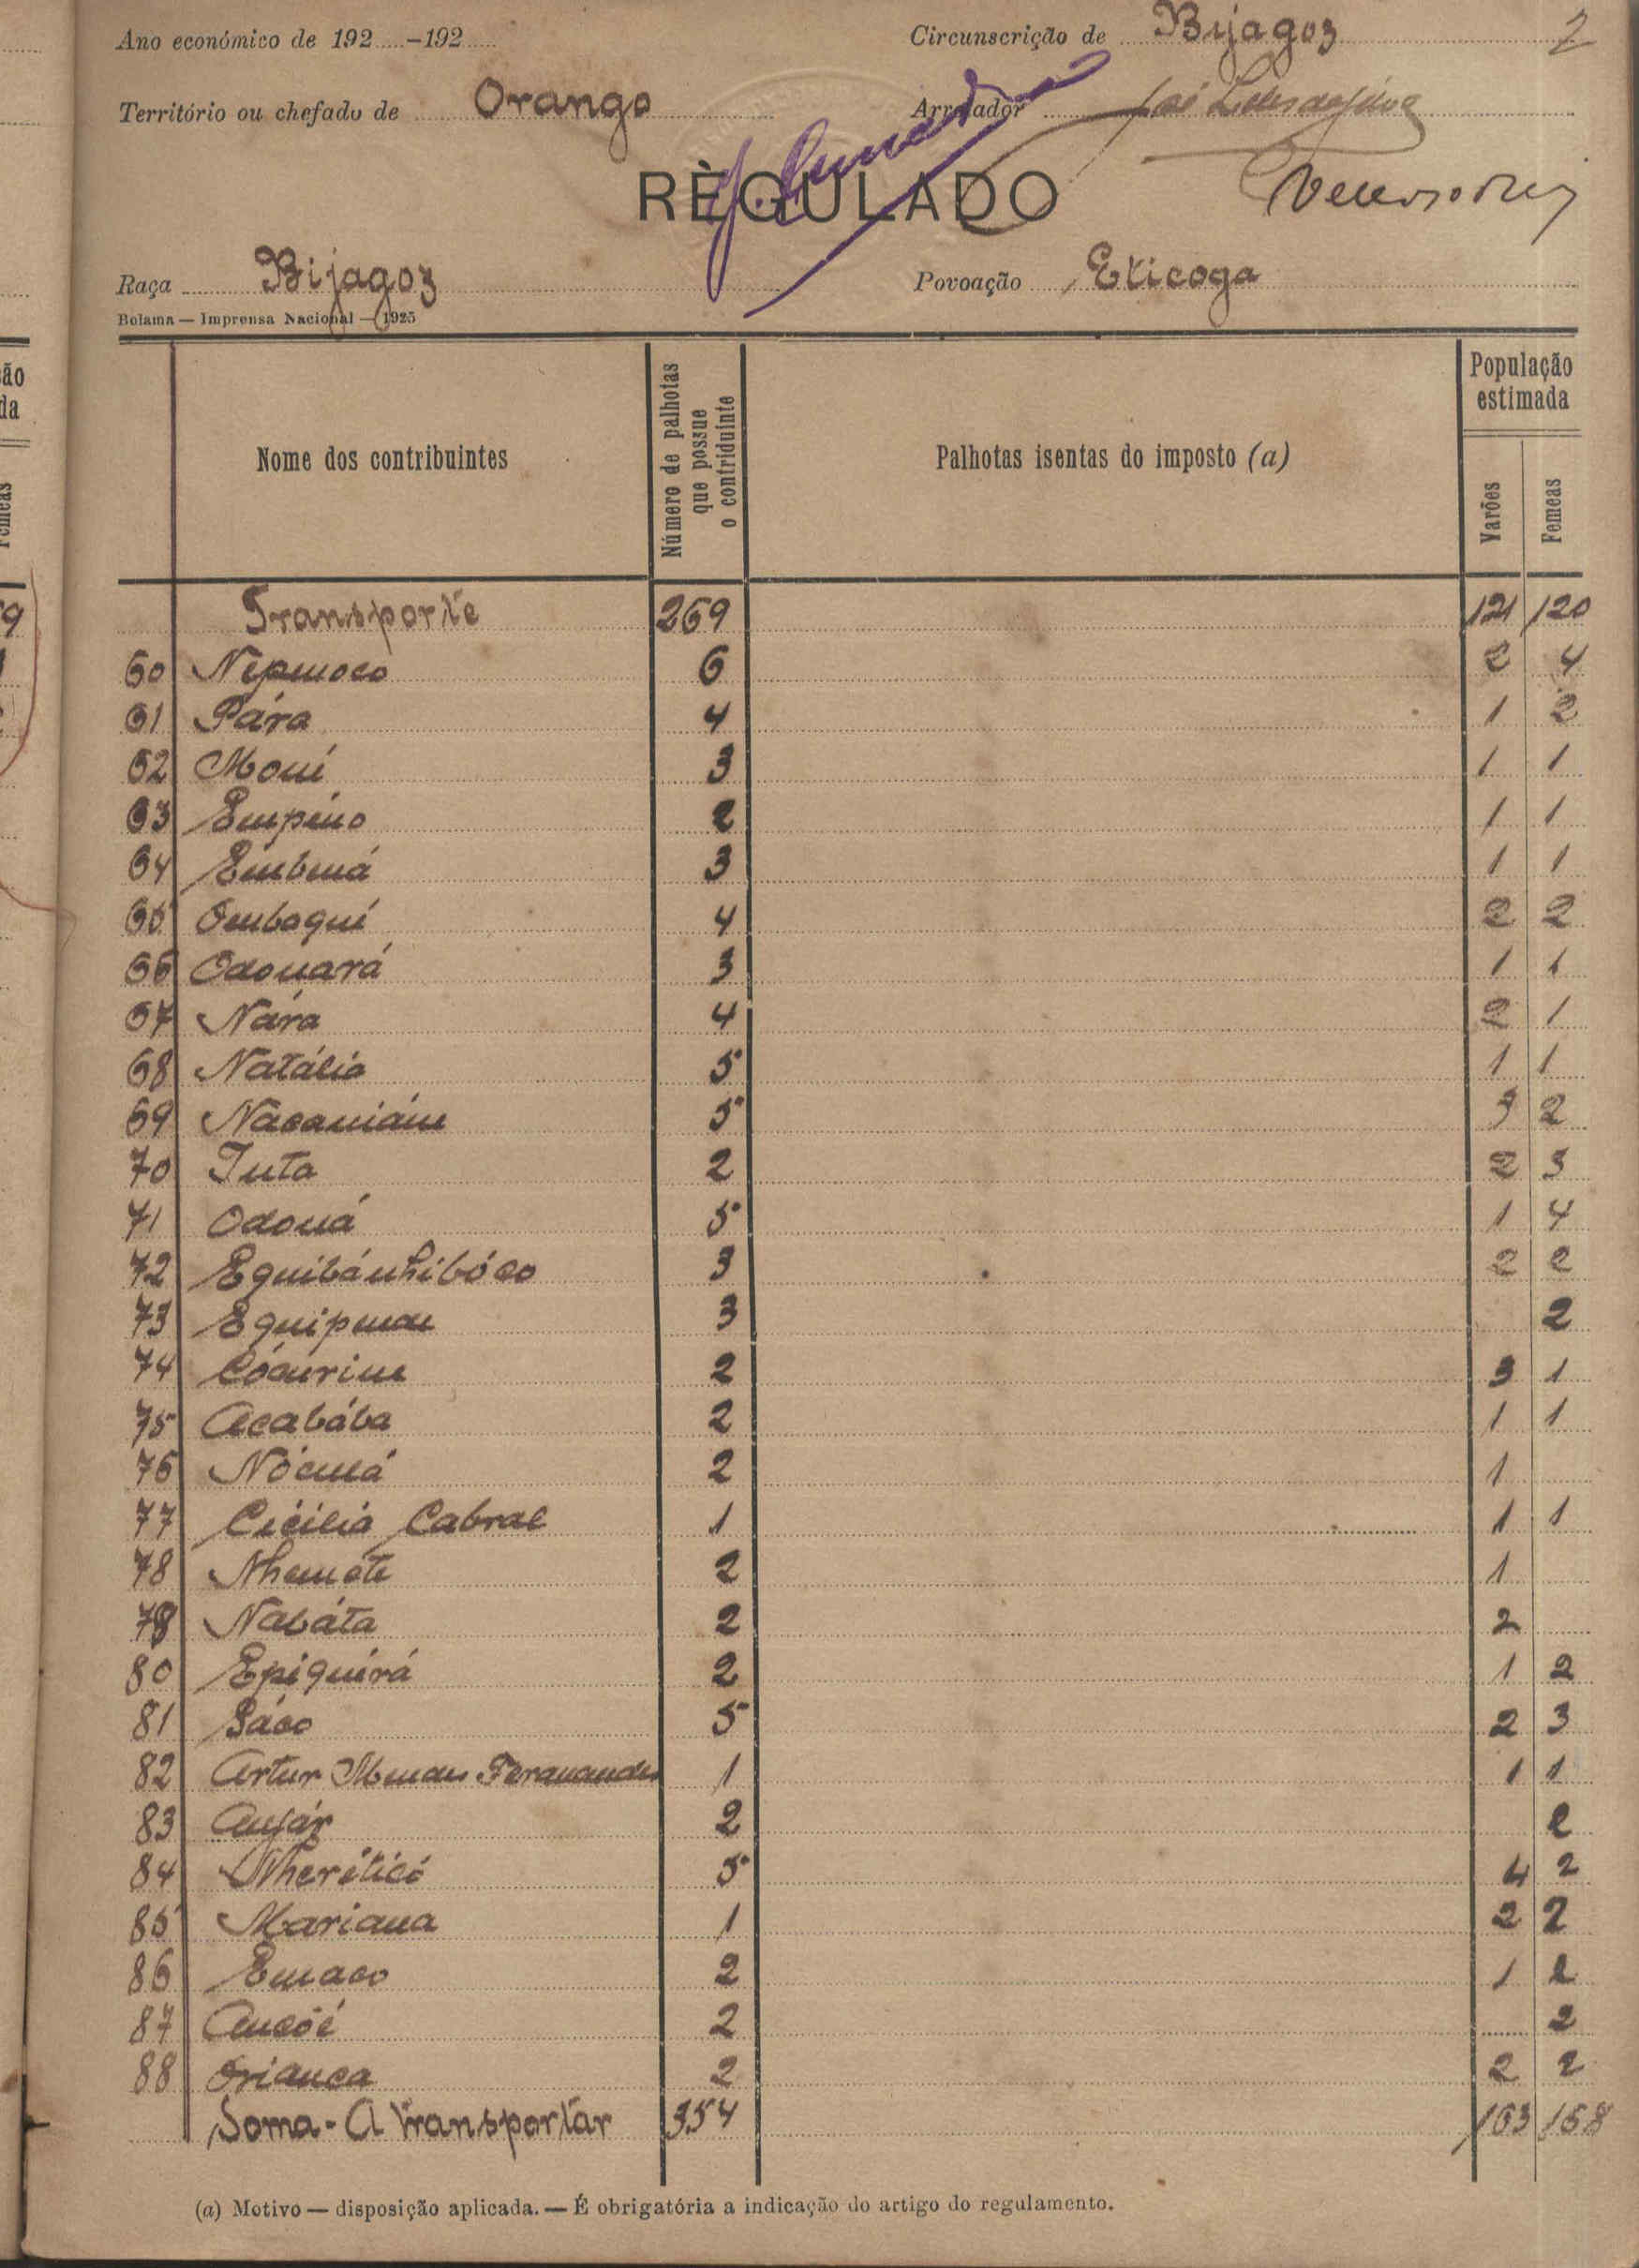 Ano económico de 192.....-192..... Circunscrição de Bijagoz 2
Território ou chefado de Orango Arrolador José
RÈGULADO
Raça Bijagoz Povoação Eticoga
Bolama — Imprensa Nacional — 1925
Nome dos contribuintes Número de palhotas que possue o contriduinte Palhotas isentas do imposto (a) População estimada Varões Femeas
Transporte 269 121 120
60 6 2 4
61 Pára 4 1 2
62 Mouí 3 1 1
63 Empino 2 1 1
64 3 1 1
65 Omboqui 4 2 2
66 Odouará 3 1 1
67 Nára 4 2 1
68 Natália 5 1 1
69 Nacaniám 5 3 2
70 Tuta 2 2 3
71 Odouá 5 1 4
72 Equibánhibóco 3 2 2
73 3 2
74 Cócurim 2 3 1
75 Acabába 2 1 1
76 2 1
77 Cicilia Cabral 1 1 1
78 Nhemete 2 1
79 Nabáta 2 2
80 Epiquirá 2 1 2
81 Sáco 5 2 3
82 Artur Mendes Feranandes 1 1 1
83 2 2
84 Nheriticó 5 4 2
85 Mariana 1 2 2
86 Emaco 2 1 2
87 2 2
88 Orianca 2 2 2
Soma - A transportar 354 163 168
(a) Motivo — disposição aplicada. — É obrigatória a indicação do artigo do regulamento.